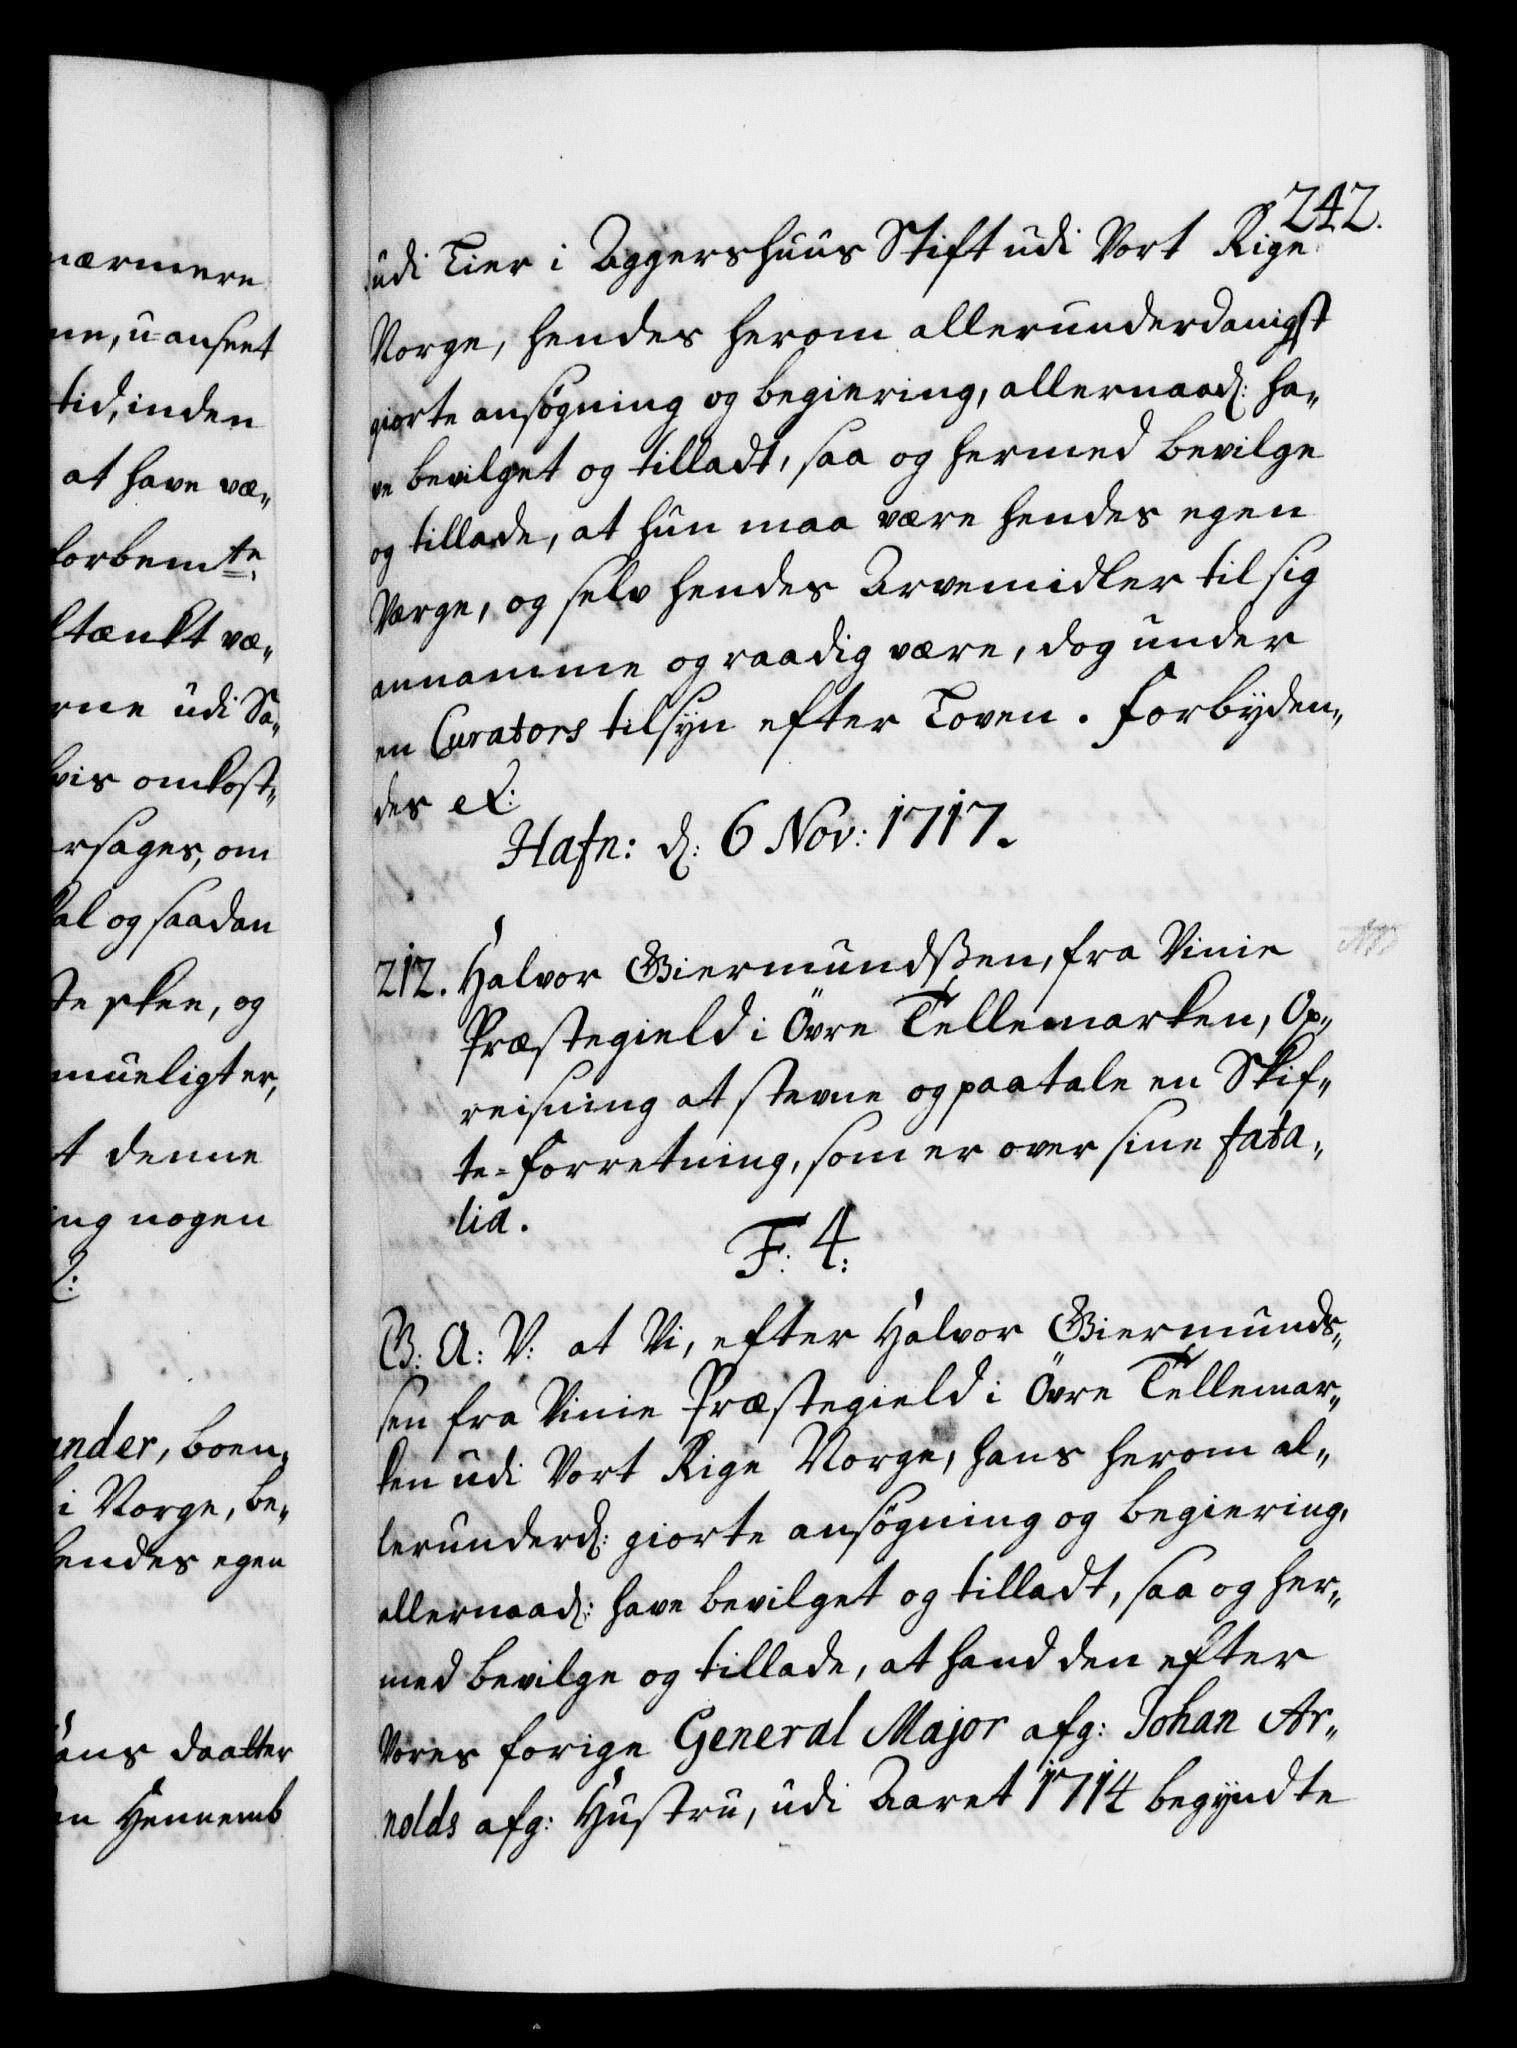 nærmere
ne, u-anseet
tid, inden
at have væ„
forbemte,
tænkt væ„
rne udi Sa„
vis omkost„
rsages, om
al og saadan
te skee, og
mueligt er,
t denne
ing nogen
ander, boen„
i Norge, be„
hendes egen
ans daatter
en Hennemb
242.
udi Lier i Aggershuus Stift udi Vort Rige
Norge, hendes herom allerunderdanigst
giorte ansøgning og begiering, allernaad: ha„
ve bevilget og tilladt, saa og hermed bevilge
og tillade, at hun maa være hendes egen
Værge, og selv hendes Arvemidler til sig
annamme og raadig være, dog under
en Curators tilsyn efter Loven. Forbyden„
des etc:
Hafn: d: 6 Nov: 1717.
212. Halvor Giermundssen, fra Vinie
Præstegield i Övre Tellemarken, Op„
reisning at stevne og paatale en Skif„
te-forretning, som er over sine fata„
lia.
F: 4:
G: A: V: at Vi, efter Halvor Giermunds„
sen fra Vinie Præstegield i Övre Tellemar„
ken udi Vort Rige Norge, hans herom al„
lerunderd: giorte ansøgning og begiering,
allernaad: have bevilget og tilladt, saa og her„
med bevilge og tillade, at hand den efter
Vores forige General Major afg: Johan Ar„
nolds afg: Hustru, udi Aaret 1714 begyndte